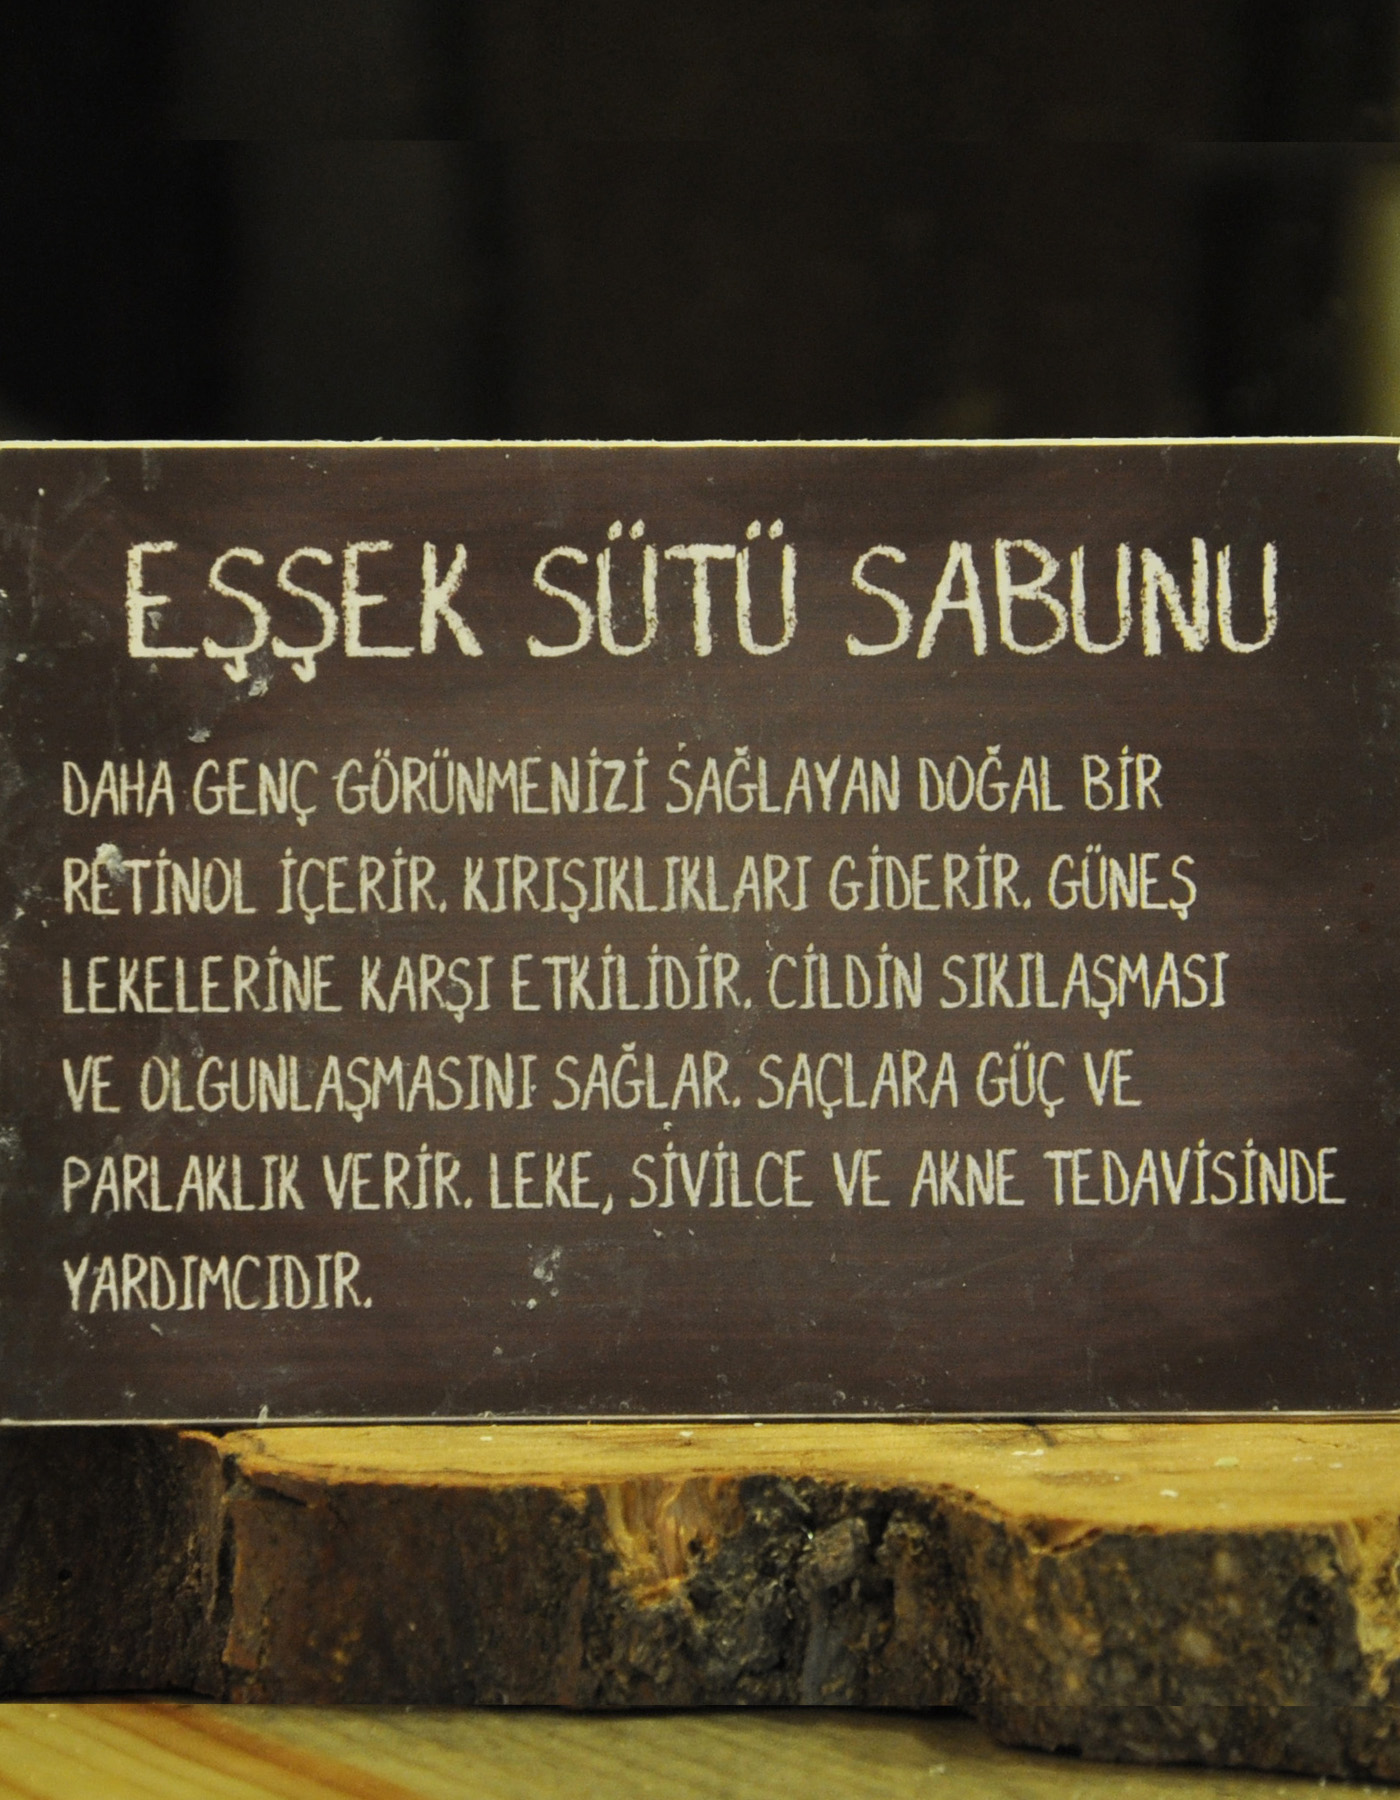 EŞŞEK SÜTÜ SABUNU
DAHA GENÇ GÖRÜNMENİZİ SAĞLAYAN DOĞAL BİR
RETİNOL İÇERİR. KIRIŞIKLIKLARI GİDERİR. GÜNEŞ
LEKELERİNE KARŞI ETKİLİDİR. CİLDİN SIKILAŞMASI
VE OLGUNLAŞMASINI SAĞLAR. SAÇLARA GÜÇ VE
PARLAKLIK VERİR. LEKE, SİVİLCE VE AKNE TEDAVİSİNDE
YARDIMCIDIR.